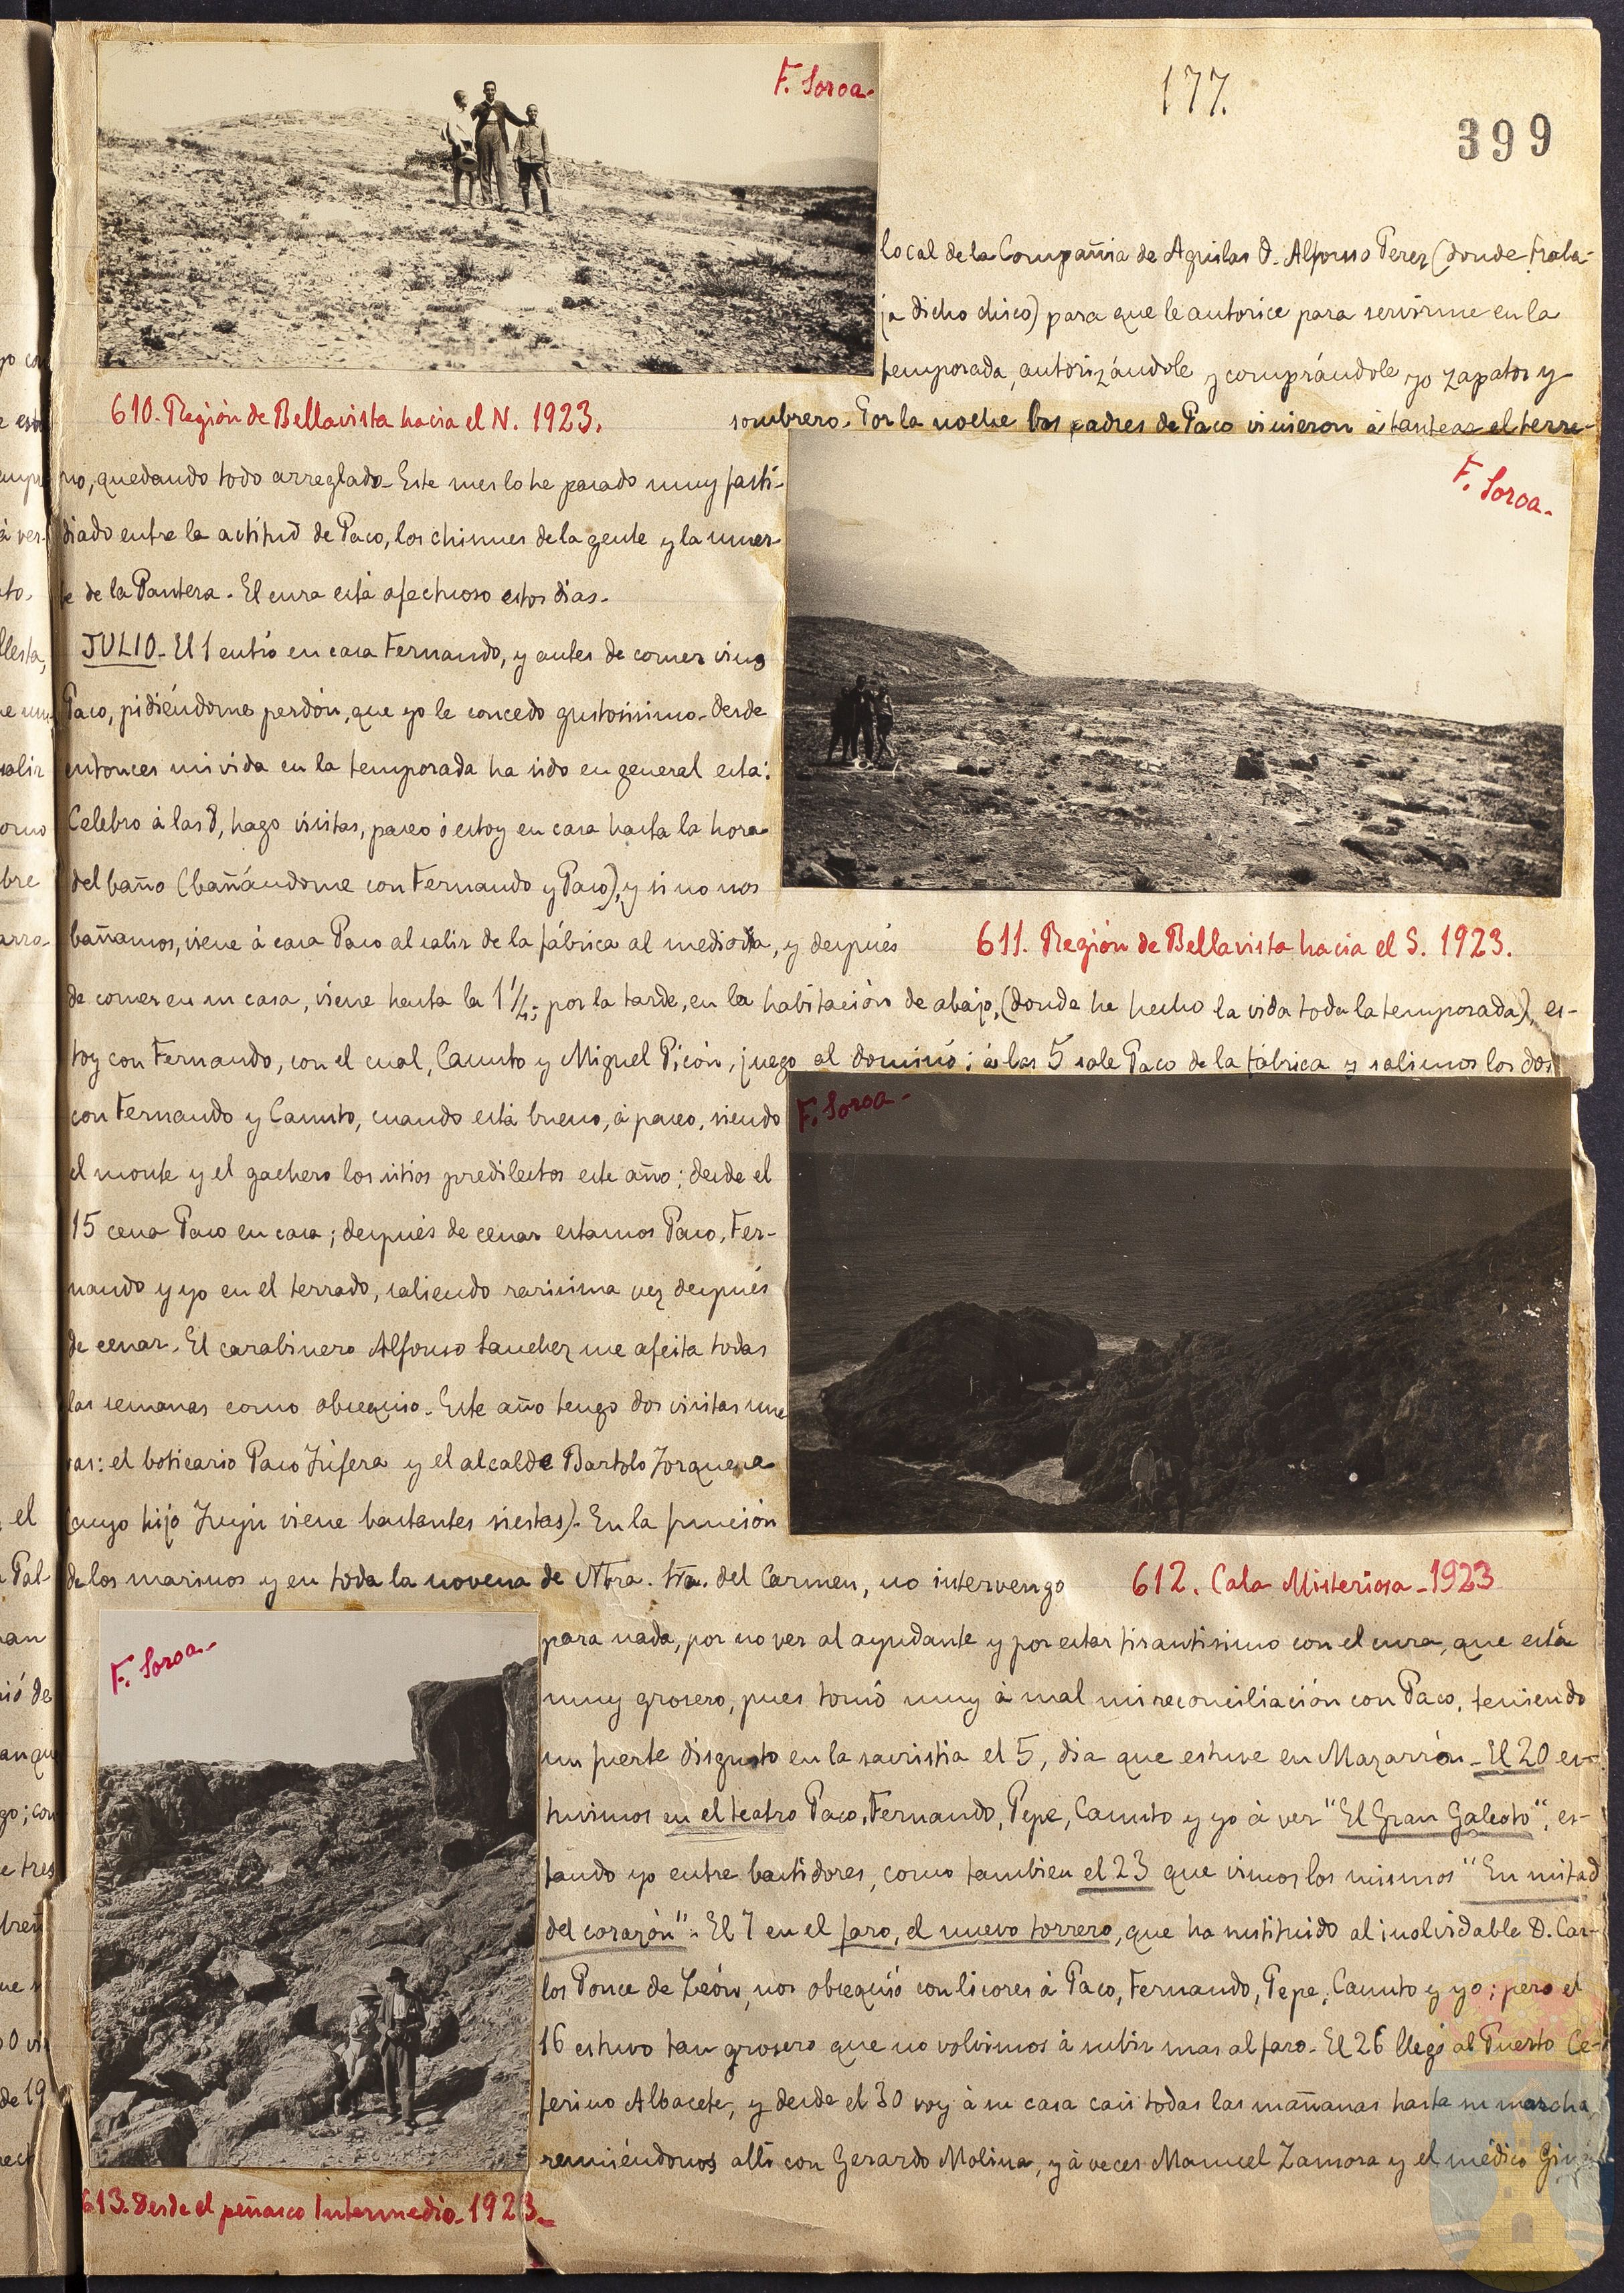 177.
399
F. Soroa.
local de la Compañia de Aguilas D. Alfonso Perez (donde traba-
ja dicho chico) para que le autorice para servirme en la
temporada, autorizándole y comprándole yo zapatos y
610. Región de Bellavista hacia el N. 1923.
sombrero. Por la noche los padres de Paco vinieron á tantear el terre-
no, quedando todo arreglado. Este mes lo he pasado muy fasti-
F. Soroa.
diado entre la actitud de Paco, los chismes de la gente y la muer-
te de la Pantera. El cura está afectuoso estos dias.
JULIO. El 1 entró en casa Fernando, y antes de comer vino
Paco, pidiéndome perdón, que yo le concedo gustosisimo. Desde
entonces mi vida en la temporada ha sido en general esta:
Celebro á las 8, hago visitas, paseo ó estoy en casa hasta la hora
del baño (bañándome con Fernando y Paco), y si no nos
bañamos, viene á casa Paco al salir de la fábrica al mediodia, y después
611. Región de Bellavista hacia el S. 1923.
de comer en su casa, viene hasta la 1½; por la tarde, en la habitación de abajo, (donde he hecho la vida toda la temporada), es-
toy con Fernando, con el cual, Canuto y Miguel Picón, juego al dominó; á las 5 sale Paco de la fábrica y salimos los dos
F. Soroa.
con Fernando y Canuto, cuando está bueno, á paseo, siendo
el monte y el gachero los sitios predilectos este año; desde el
15 cena Paco en casa; después de cenar estamos Paco, Fer-
nando y yo en el terrado, saliendo rarisima vez después
de cenar. El carabinero Alfonso Sanchez me afeita todas
las semanas como obsequio. Este año tengo dos visitas nue
vas: el boticario Paco Zúfera y el alcalde Bartolo
(cuyo hijo viene bastantes siestas). En la función
de los marinos y en toda la novena de Ntra. Sra. del Carmen, no intervengo
612. Cala Misteriosa. 1923
F. Soroa.
para nada, por no ver al ayudante y por estar tirantisimo con el cura, que está
muy grosero, pues tomó muy á mal mi reconciliación con Paco, teniendo
un fuerte disgusto en la sacristia el 5, dia que estuve en Mazarrón. El 20 es-
tuvimos en el teatro Paco, Fernando, Pepe, Canuto y yo á ver "El Gran Galeoto", es-
tando yo entre bastidores, como tambien el 23 que vimos los mismos "En mitad
del corazón". El 7 en el faro, el nuevo torrero, que ha sustituido al inolvidable D. Car-
los Ponce de León, nos obsequió con licores á Paco, Fernando, Pepe, Canuto y yo; pero el
16 estuvo tan grosero que no volvimos á subir mas al faro. El 26 llegó al Puerto Ce-
ferino Albacete, y desde el 30 voy á su casa casi todas las mañanas hasta su marcha,
reuniéndonos alli con Gerardo Molina, y á veces Manuel Zamora y el médico
613. Desde el peñasco Intermedio. 1923.